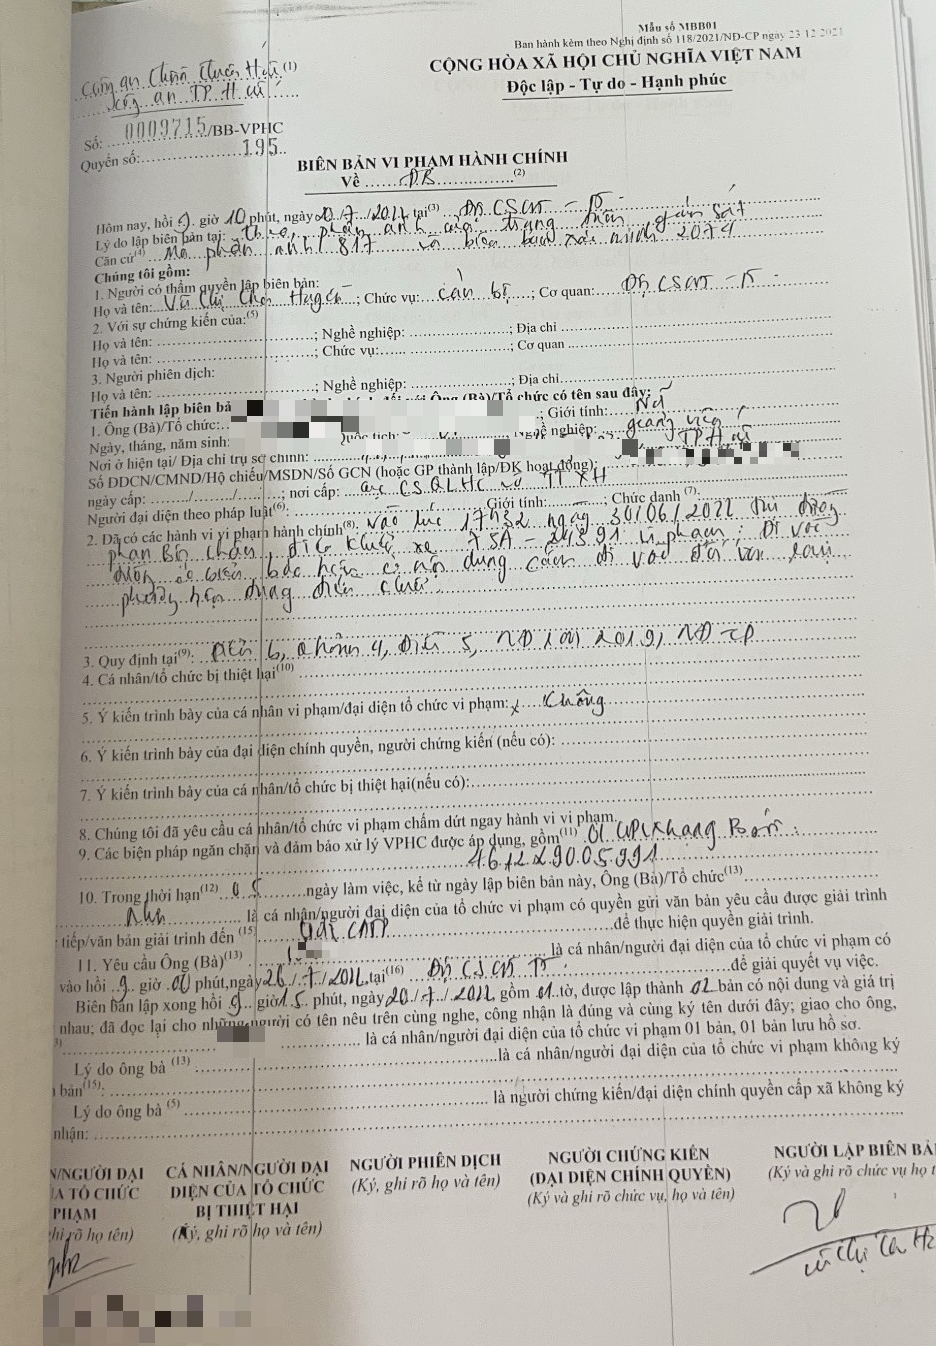 Mẫu số MBB01
Ban hành kèm theo Nghị định số 118/2021/NĐ-CP ngày 23-12-2021
CỘNG HÒA XÃ HỘI CHỦ NGHĨA VIỆT NAM
Độc lập - Tự do - Hạnh phúc
Công an (1)
Công an TP. Huế
Số: 0009715/BB-VPHC
Quyển số: 195
BIÊN BẢN VI PHẠM HÀNH CHÍNH
Về ĐB (2)
Hôm nay, hồi 9 giờ 10 phút, ngày 20/7/2022 tại(3) Đội CSGT
Lý do lập biên bản tại: Theo phản ánh của trang giám sát
Căn cứ(4) phản ánh 817 và biên bản xác minh 2074
Chúng tôi gồm:
1. Người có thẩm quyền lập biên bản:
Họ và tên: Vũ Thị ; Chức vụ: cán bộ ; Cơ quan: Đội CSGT
2. Với sự chứng kiến của:(5)
Họ và tên: ; Nghề nghiệp: ; Địa chỉ
Họ và tên: ; Chức vụ: ; Cơ quan
3. Người phiên dịch:
Họ và tên: ; Nghề nghiệp: ; Địa chỉ
Tiến hành lập biên bả Ông (Bà)/Tổ chức có tên sau đây:
1. Ông (Bà)/Tổ chức: ; Giới tính: Nữ
Ngày, tháng, năm sinh: Quốc tịch: Nghề nghiệp: giảng viên
Nơi ở hiện tại/ Địa chỉ trụ sở chính: TP Huế
Số ĐDCN/CMND/Hộ chiếu/MSDN/Số GCN (hoặc GP thành lập/ĐK hoạt động):
ngày cấp: ......./......./....... ; nơi cấp: Cục CSQLHC về TTXH
Người đại diện theo pháp luật(6): Giới tính: ; Chức danh (7):
2. Đã có các hành vi vi phạm hành chính(8): Vào lúc 17h32 ngày 30/06/2022 tại đường
Phan Bội Châu, điều khiển xe 75A - vi phạm: Đi vào
đường có biển báo hiệu có nội dung cấm đi vào đối với loại
phương tiện đang điều khiển.
3. Quy định tại(9): Điểm b, khoản 4, Điều 5, NĐ 100/2019/NĐ-CP
4. Cá nhân/tổ chức bị thiệt hại(10)
5. Ý kiến trình bày của cá nhân vi phạm/đại diện tổ chức vi phạm: x Không
6. Ý kiến trình bày của đại diện chính quyền, người chứng kiến (nếu có):
7. Ý kiến trình bày của cá nhân/tổ chức bị thiệt hại(nếu có):
8. Chúng tôi đã yêu cầu cá nhân/tổ chức vi phạm chấm dứt ngay hành vi vi phạm.
9. Các biện pháp ngăn chặn và đảm bảo xử lý VPHC được áp dụng, gồm(11) 01 GPLX hạng B
461229005991
10. Trong thời hạn(12) 05 ngày làm việc, kể từ ngày lập biên bản này, Ông (Bà)/Tổ chức(13)
là cá nhân/người đại diện của tổ chức vi phạm có quyền gửi văn bản yêu cầu được giải trình
tiếp/văn bản giải trình đến (15) CATP để thực hiện quyền giải trình.
11. Yêu cầu Ông (Bà)(13) là cá nhân/người đại diện của tổ chức vi phạm có
vào hồi 9 giờ 00 phút, ngày 26/7/2022, tại(16) Đội CSGT để giải quyết vụ việc.
Biên bản lập xong hồi 9 giờ 15 phút, ngày 20/7/2022, gồm 01 tờ, được lập thành 02 bản có nội dung và giá trị
nhau; đã đọc lại cho những người có tên nêu trên cùng nghe, công nhận là đúng và cùng ký tên dưới đây; giao cho ông,
là cá nhân/người đại diện của tổ chức vi phạm 01 bản, 01 bản lưu hồ sơ.
Lý do ông bà (13) là cá nhân/người đại diện của tổ chức vi phạm không ký
bản(15):
Lý do ông bà (5) là người chứng kiến/đại diện chính quyền cấp xã không ký
nhận:
N/NGƯỜI ĐẠI
A TỔ CHỨC
PHẠM
ghi rõ họ tên)
CÁ NHÂN/NGƯỜI ĐẠI
DIỆN CỦA TỔ CHỨC
BỊ THIỆT HẠI
(Ký, ghi rõ họ và tên)
NGƯỜI PHIÊN DỊCH
(Ký, ghi rõ họ và tên)
NGƯỜI CHỨNG KIẾN
(ĐẠI DIỆN CHÍNH QUYỀN)
(Ký và ghi rõ chức vụ, họ và tên)
NGƯỜI LẬP BIÊN BẢ
(Ký và ghi rõ chức vụ họ t